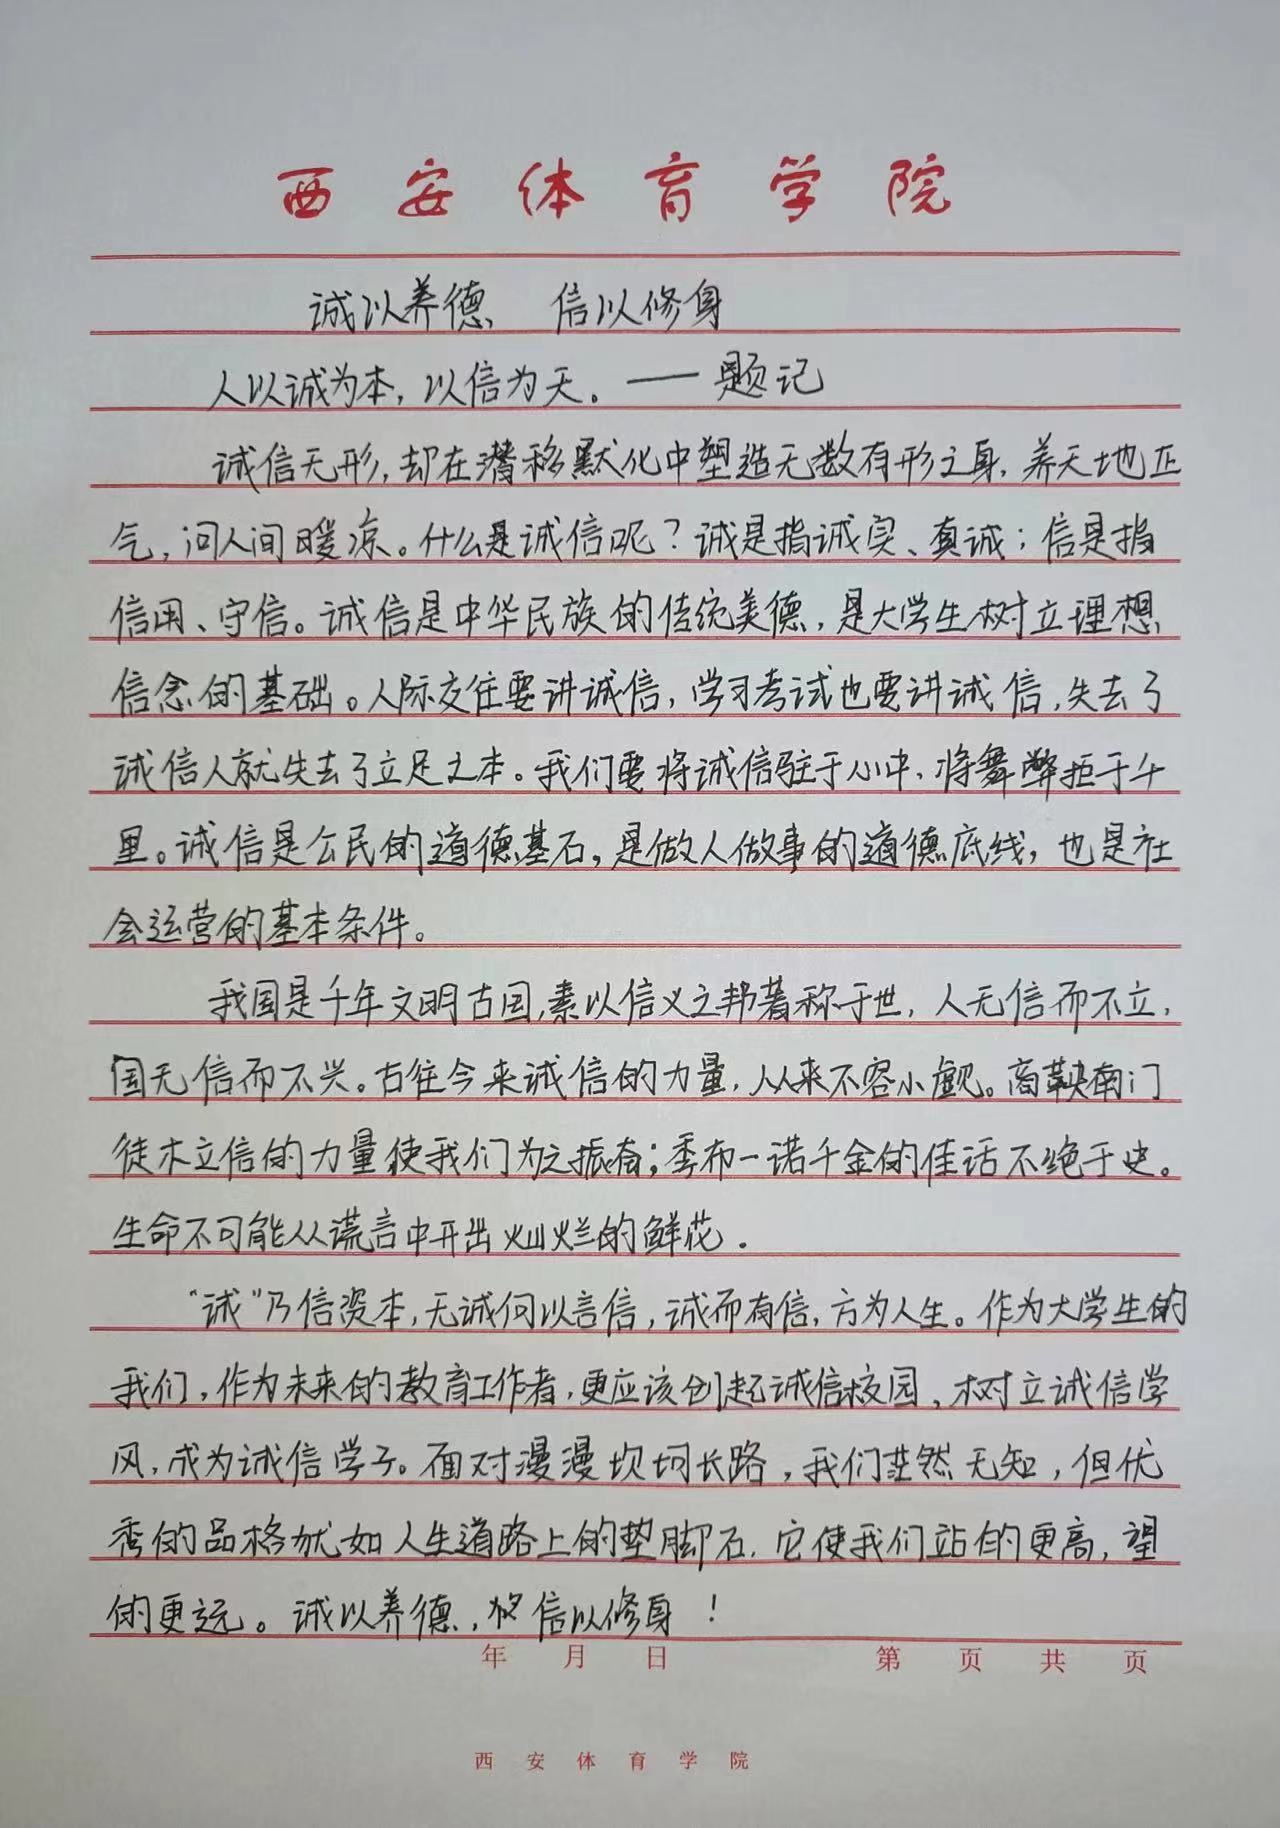 西安体育学院
诚以养德 信以修身
人以诚为本，以信为天。——题记
诚信无形，却在潜移默化中塑造无数有形之身，养天地正
气，问人间暖凉。什么是诚信呢？诚是指诚实、真诚；信是指
信用、守信。诚信是中华民族的传统美德，是大学生树立理想
信念的基础。人际交往要讲诚信，学习考试也要讲诚信，失去了
诚信人就失去了立足之本。我们要将诚信驻于心中，将舞弊拒于千
里。诚信是公民的道德基石，是做人做事的道德底线，也是社
会运营的基本条件。
我国是千年文明古国，素以信义之邦著称于世，人无信而不立，
国无信而不兴。古往今来诚信的力量，从来不容小觑。商鞅南门
徒木立信的力量使我们为之振奋；季布一诺千金的佳话不绝于史。
生命不可能从谎言中开出灿烂的鲜花。
“诚”乃信资本，无诚何以言信，诚而有信，方为人生。作为大学生的
我们，作为未来的教育工作者，更应该创起诚信校园，树立诚信学
风，成为诚信学子。面对漫漫坎坷长路，我们茫然无知，但优
秀的品格犹如人生道路上的垫脚石，它使我们站的更高，望
的更远。诚以养德，信以修身！
年 月 日 第 页 共 页
西安体育学院